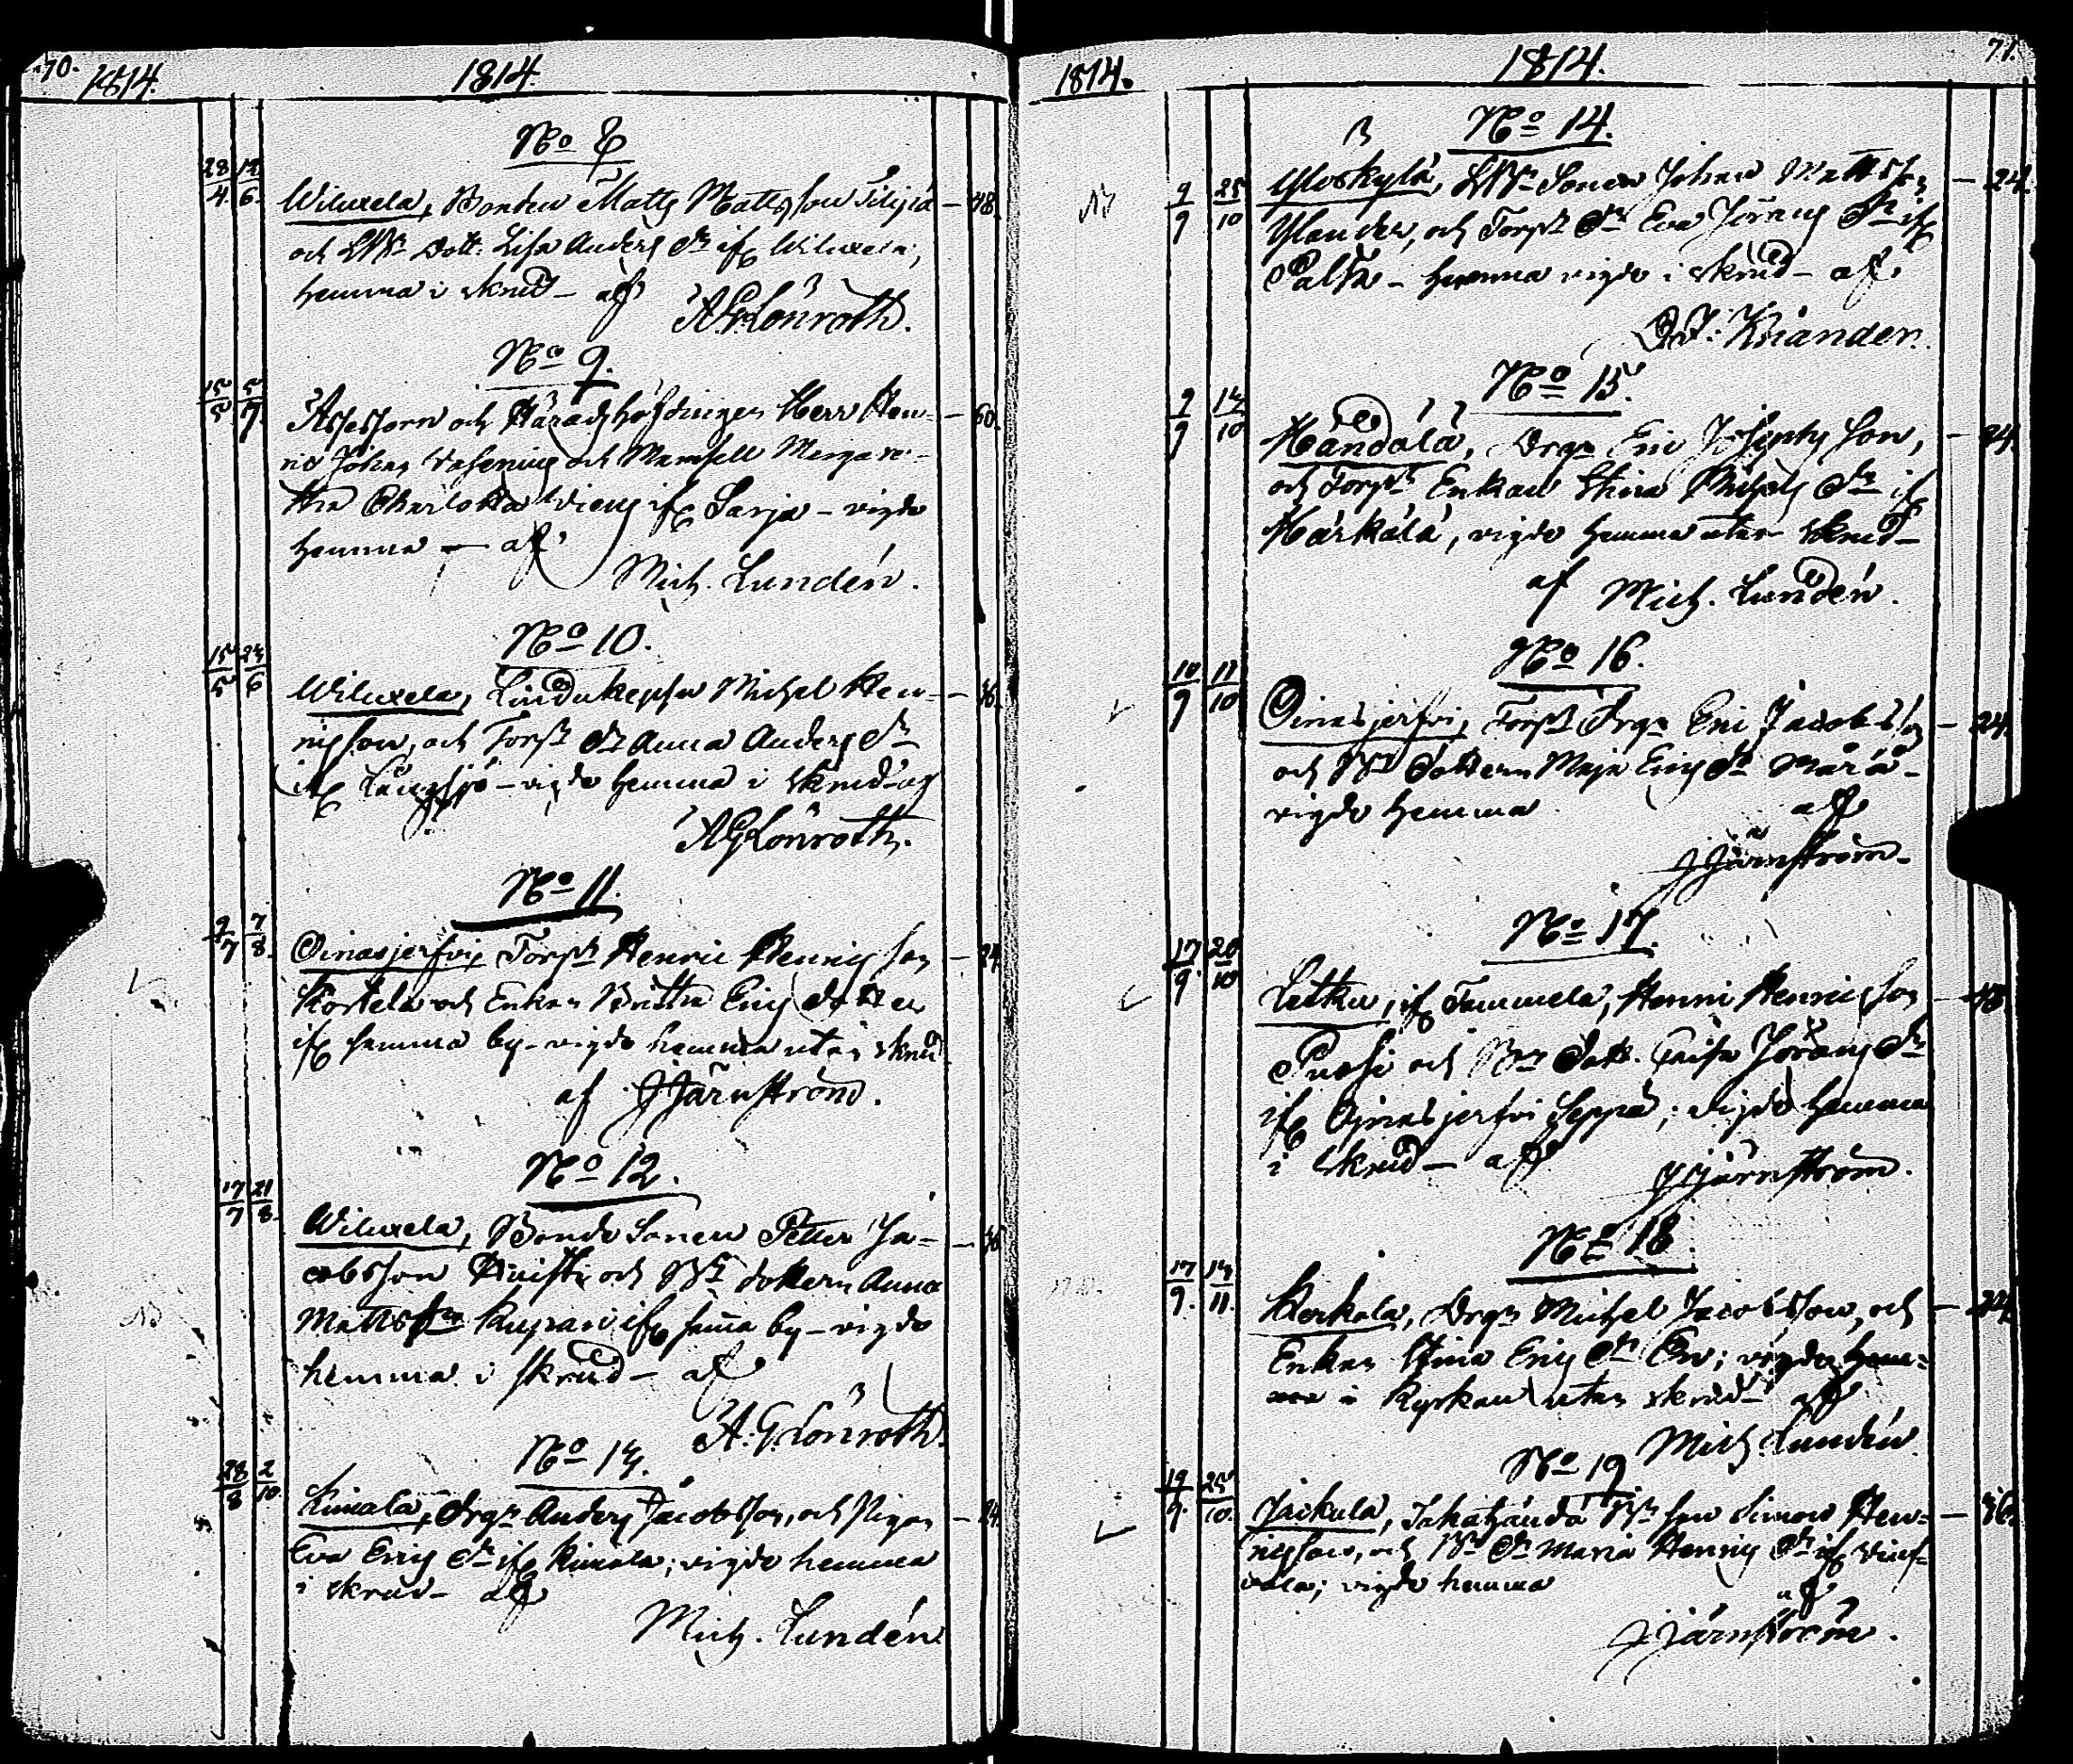 70.
1814.
1814.
No 8
28/4 12/6
Wiluxela, Bonden Matts Mattsson Silijä — 48.
och Dott: Lisa Anders Dr ifr Wiluxela,
hemma i skrud – af
AGLönroth.
No 9.
15/5 5/7
Assessorn och Häradshöfdingen Herr Hen- — 60.
ric Johan och Mamsell Margare-
tha Charlotta ifr Sarja – vigde
hemma — af
Mich. Lundén.
No 10.
15/5 24/6
Wiluxela, Michel Hen- — 36.
ricsson, och Torp Dr Anna Anders Dr
ifr Långsjö – vigde hemma i skrud af
AGLönroth.
No 11.
9/7 7/8
Oinasjerfvi, Torp Henric Henricsson — 24
Kortela och Enkan Britha Erics dotter
ifr samma by – vigde hemma utan skrud
af JJärnström.
No 12.
17/7 21/8
Wiluxela, Bonde Sonen Petter Ja- — 36
cobsson och Bde dottern Anna
Matts Dr Kupari ifr samma by – vigde
hemma i skrud – af
A.G.Lönroth.
No 13.
28/8 2/10
Kimala, Drgn Anders Jacobsson, och Pigan — 24.
Eva Erics Dr ifr Kimala; vigde hemma
i skrud – af
Mich. Lundén
1814.
1814.
71.
No 14.
9/9 25/10
Yloskylä, Sonen Johan Mattsson — 24.
Ylander, och Torp Dr Eva Jörans Dr ifr
Palta – hemma vigde i skrud – af
Kiander.
No 15.
9/9 14/10
Håndälä, Drgn Eric Josephsson, — 24.
och Torp Enkan Stina Michels Dr if
Härkälä, vigde hemma utan skrud –
af Mich. Lundén.
No 16.
10/9 11/10
Oinasjerfvi, Torp Drgn Eric Jacobsson — 24.
och Bde dottern Maja Erics Dr Märä –
vigde hemma af
JJärnström –
No 17.
17/9 20/10
Letku, ifr Tammela, Henric Henricsson — 48.
och Bde Dott. Caisa Jörans Dr
ifr Ojnasjerfvi Seppä; vigde hemma
i skrud – af JJärnström.
No 18.
17/9. 13/11.
Kerkola, Drgn Michel Jacobsson, och — 24.
Enkan Stina Erics Dr Ero; vigde hem-
ma i Kyrkan utan skrud – af
Mich. Lundén
No 19
19/9 25/10.
Jackula, Bde son Simon Hen- — 36.
ricsson, och Bde Dr Maria Henrics Dr ifr
vala; vigde hemma af
JJärnström.